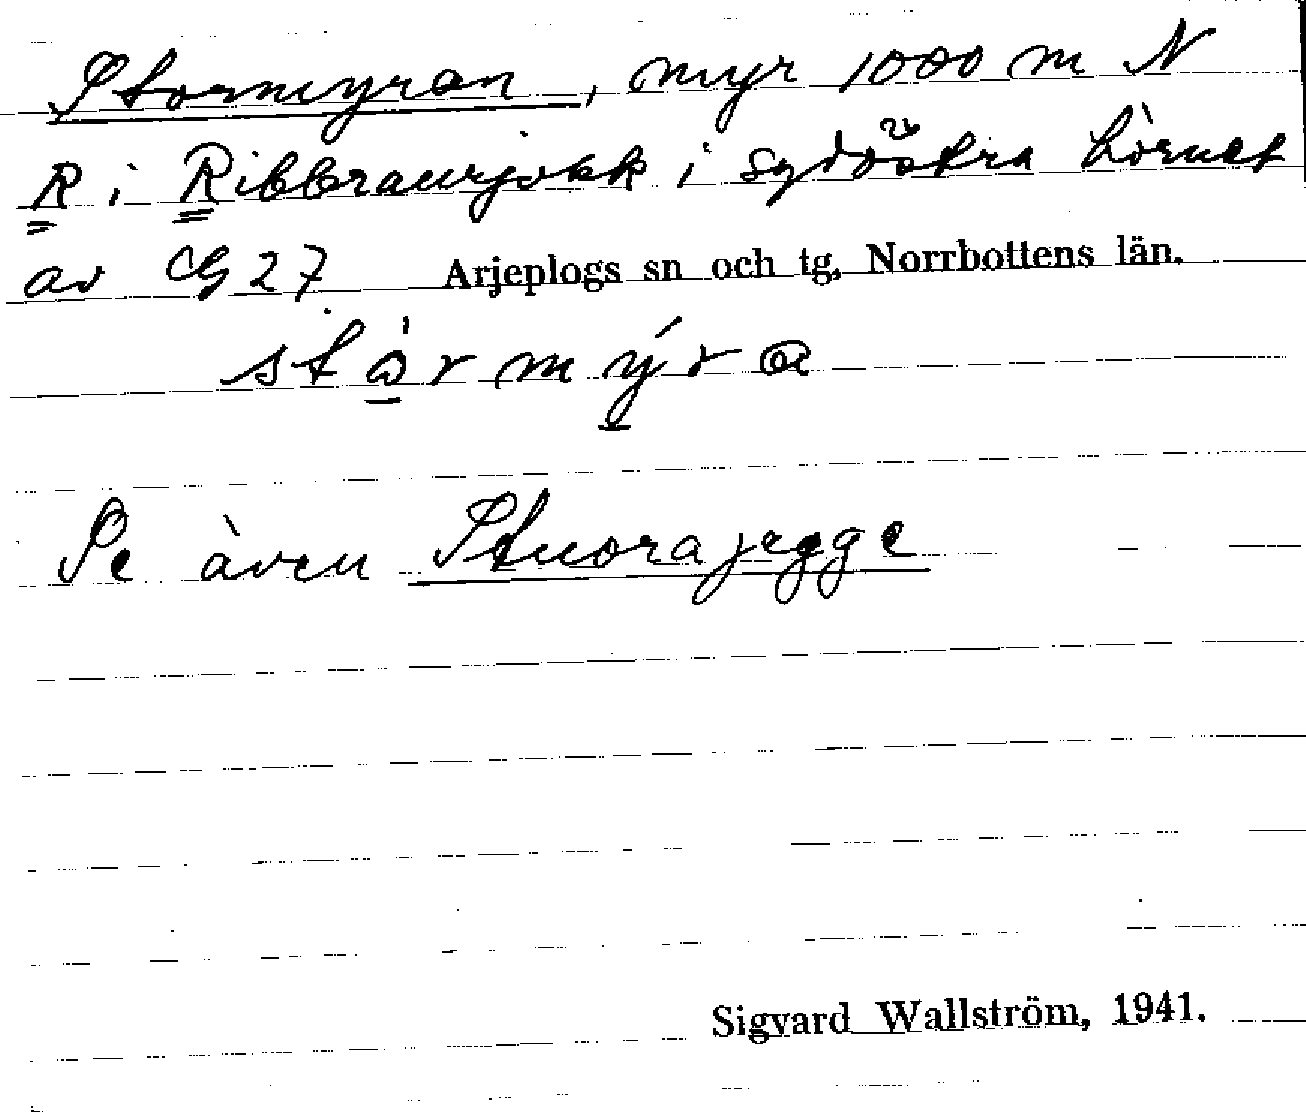 Stormyran, myr 1000 m N
R i Ribbraurjokk i sydöstra hörnet
av G 27 Arjeplogs sn och tg, Norrbottens län.
stårmýra
Se även Stuorajegge
Sigvard Wallström, 1941.